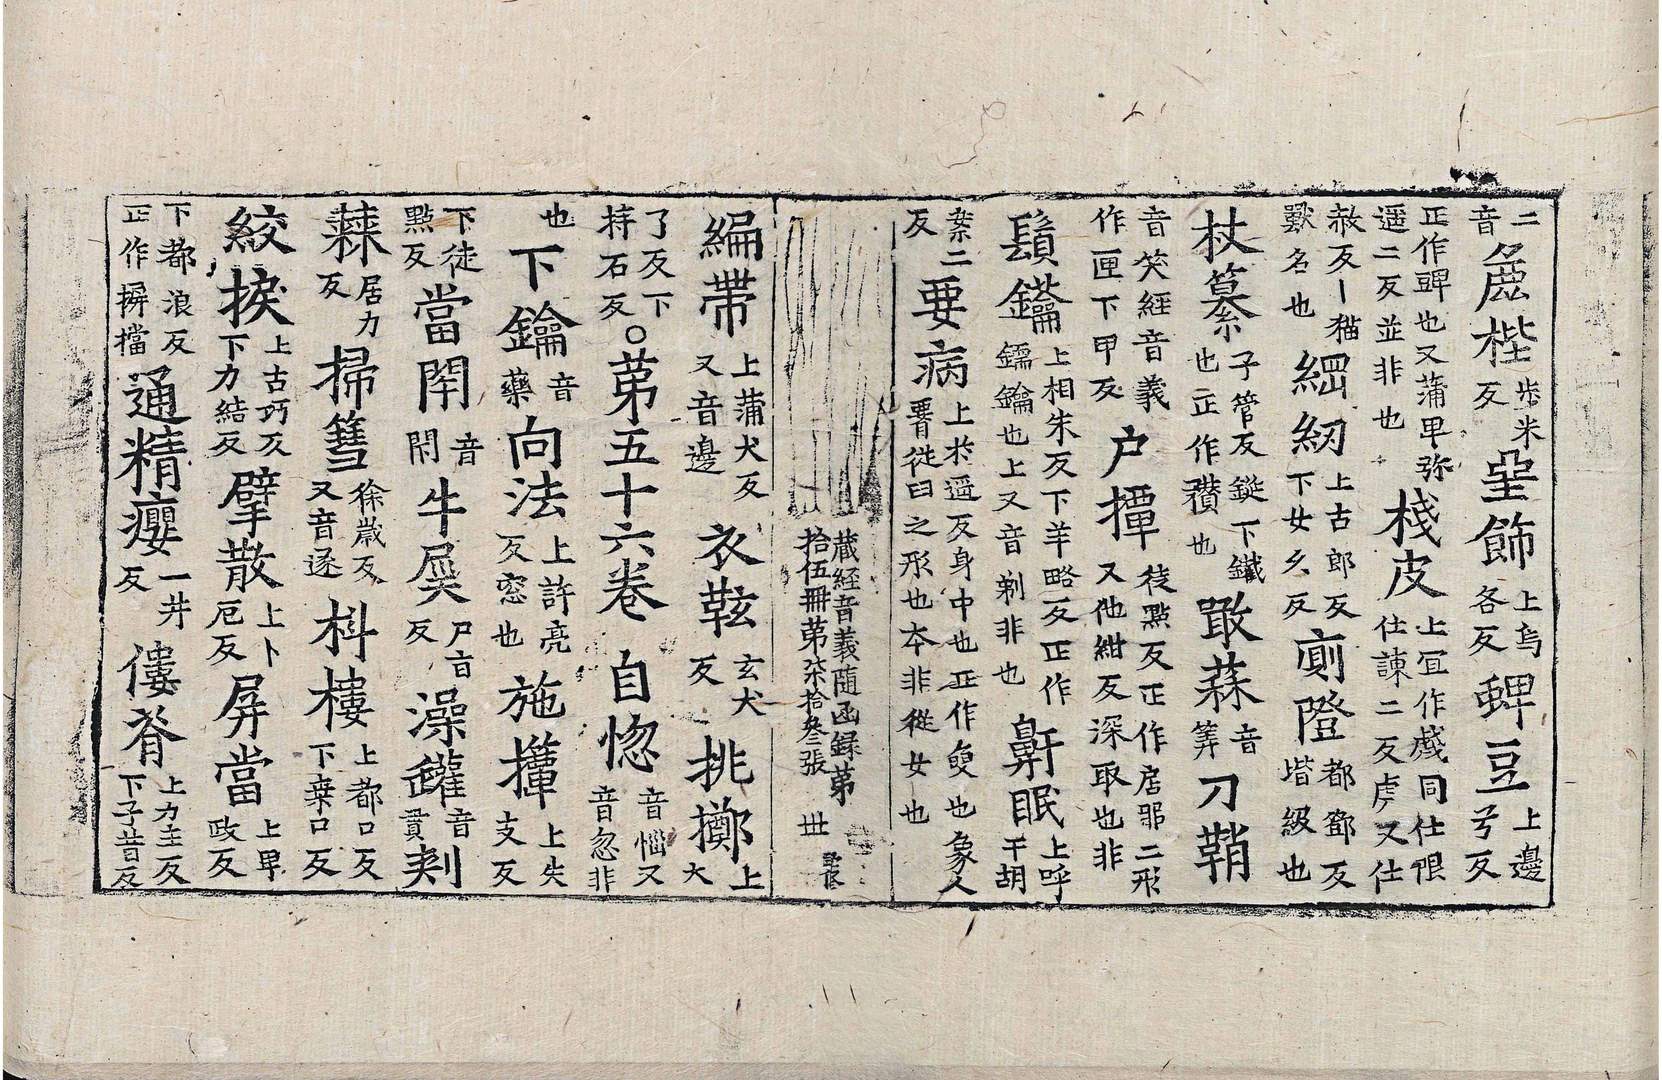 二音麁梐步米反堊飾上烏各反蜱豆上邊兮反
正作䶌也又蒲卑弥遥二反並非也棧皮上宜作虥同仕限仕諫二反虎又仕
赦反丨猫獸名也綑紉上古郎反下女久反廁隥都鄧反堦級也
杖篡子管反鋋下鐵也正作穳也㪚蒜音筭刀鞘
音笑經音義作匣下甲反户撢徒點反正作居那二形又他紺反深取也非
鬚鑰上相朱反下羊略反正作鑐鑰也上又音剃非也鼾眠上呼干胡
案二反要病上於遥反身中也正作𦥼也象人𦥼從臼之形也本非從女也
藏經音義隨函録第拾伍冊第柒拾叁張 丗
編帶上蒲犬反又音邊衣䩙玄犬反挑擲上大
了反下持石反○第五十六卷自惚音惱又音忽非
也下鑰音藥向法上許亮反窓也施攆上失支反
下徒點反當閇音閇牛屎尸旨反澡罐音貫刾
蕀居力反掃篲徐歲反又音遂枓樓上都口反下桒口反
絞捩上古巧反下力結反擘散上卜厄反屏當上卑政反
下都浪反正作摒擋通精癭一井反僂脊上力主反下子昔反